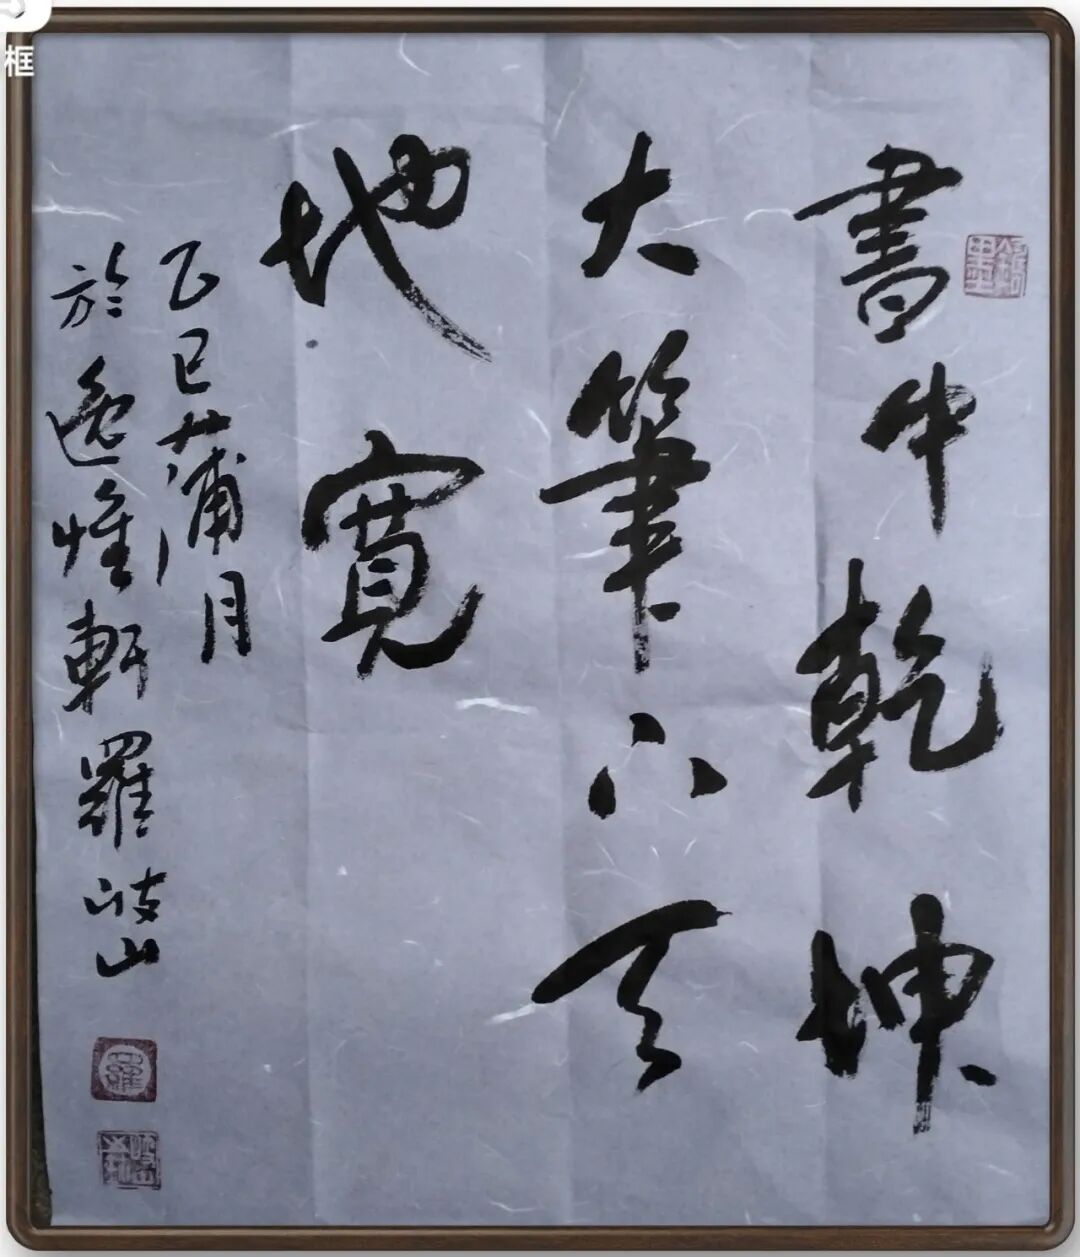 書中乾坤
大筆下天
地寬
乙巳蒲月
於逸惟軒羅岐山
框
羅